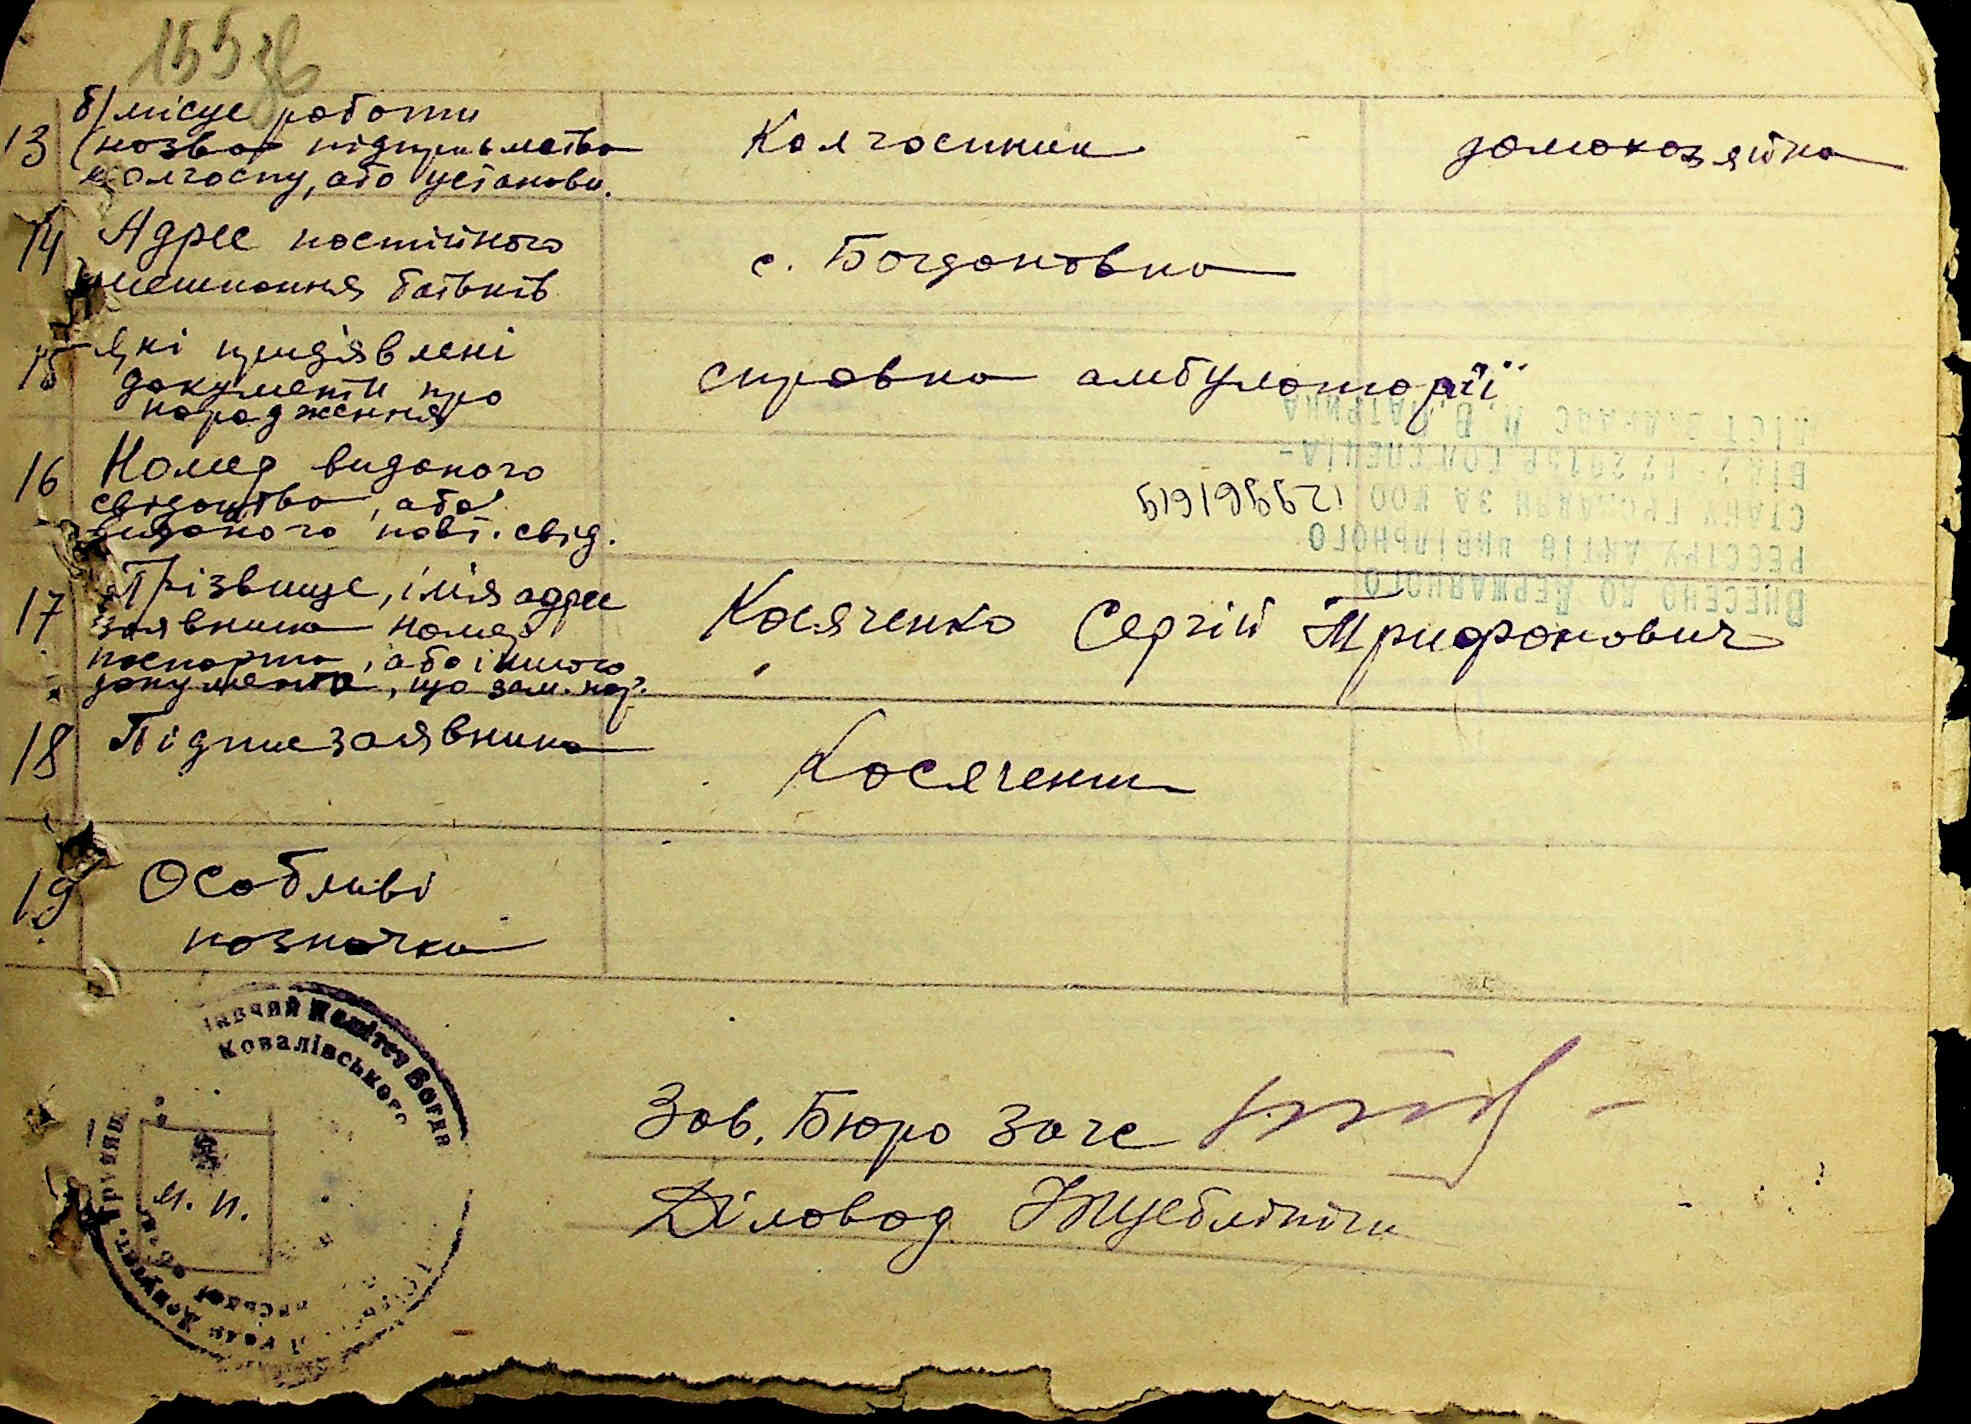 155 зв
13 б/ місце роботи
(назва підприємства
колгоспу, або установи.
Колгоспник
домохозяйка
14 Адрес постійного
мешкання батьків
с. Богдановка
15 Які предявлені
документи про
народження
справка амбулаторії
16 Номер виданого
свідоцтва, або
виданого повт. свід.
17 Прізвище, імія адрес
заявника номер
паспорта, або іншого
документа, що зам. пас.
Косяченко Сергій Трифонович
18 Підпис заявника
Косяченко
19 Особливі
позначки
ВНЕСЕНО ДО ДЕРЖАВНОГО
РЕЄСТРУ АКТІВ ЦИВІЛЬНОГО
СТАНУ ГРОМАДЯН ЗА №00
ВІД
Комітету Богда
Ковалівського
м. п.
Зав. Бюро Загс
Діловод